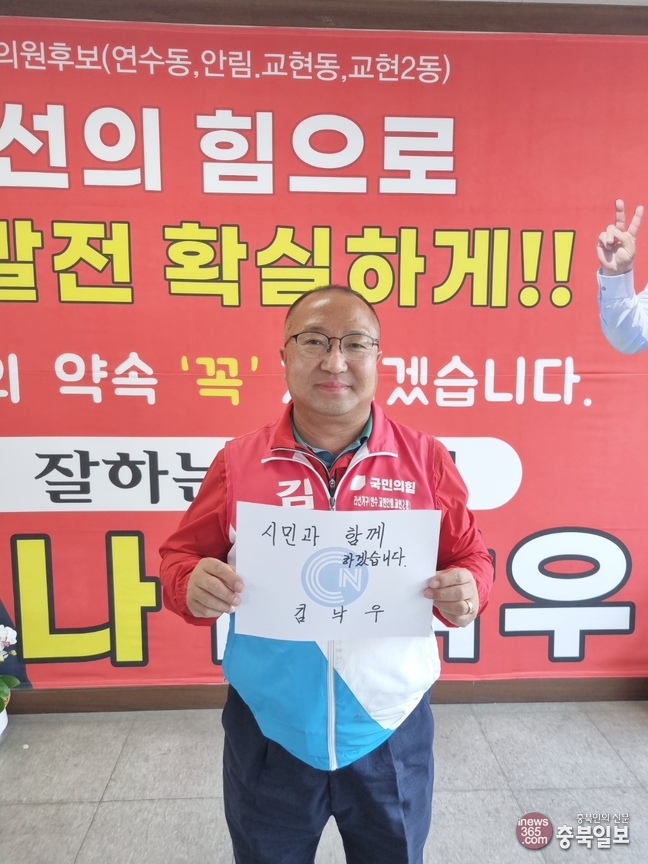 의원후보(연수동,안림.교현동,교현2동)
선의 힘으로
발전 확실하게!!
의 약속 '꼭' 겠습니다.
잘하는
나 우
국민의힘
김
시민과 함께
하겠습니다.
CN
김 낙 우
충북인의 신문
inews365.com 충북일보